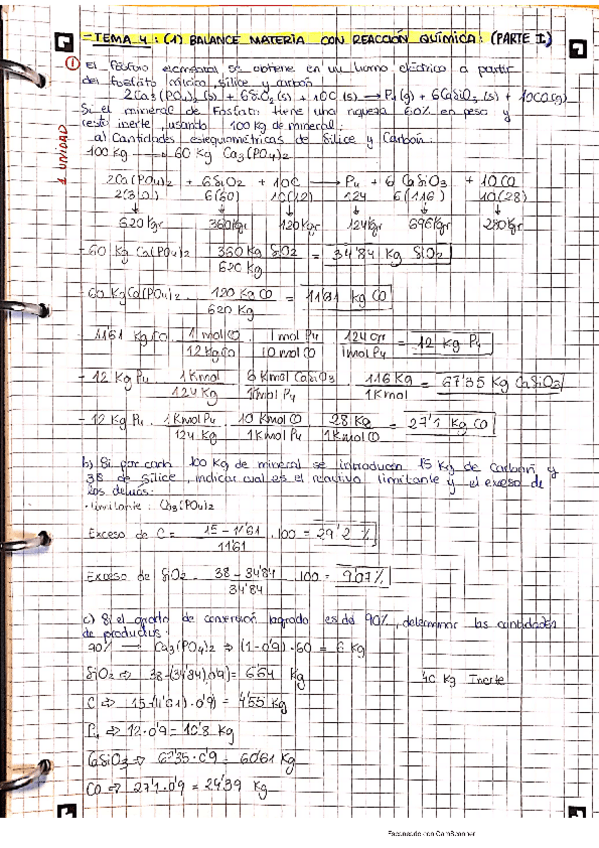 = TEMA 4: (1) BALANCE MATERIA CON REACCIÓN QUÍMICA: (PARTE I)
① El fósforo elemental se obtiene en un horno eléctrico a partir
del fosfato cálcico, sílice y carbón
2Ca3(PO4)2 (s) + 6SiO2 (s) + 10C (s) → P4 (g) + 6CaSiO3 (s) + 10CO (g)
Si el mineral de Fosfato tiene una riqueza 60% en peso y
resto inerte, usando 100 kg de mineral:
1 UNIDAD
a) Cantidades estequiométricas de Sílice y Carbón:
100 Kg → 60 Kg Ca3(PO4)2
2Ca(PO4)2 + 6SiO2 + 10C → P4 + 6 CaSiO3 + 10CO
2(310) 6(60) 10(12) 124 6(116) 10(28)
620Kgr 360Kgr 120Kgr 124Kgr 696Kgr 280Kgr
- 60 Kg Ca(PO4)2 360 Kg SiO2 / 620 Kg = 34'84 Kg SiO2
- 60 KgCa(PO4)2 · 120 Kg CO / 620 Kg = 11'61 Kg CO
- 11'61 Kg CO · 1 mol CO / 12 Kg CO · 1 mol P4 / 10 mol CO · 124 gr / 1 mol P4 = 12 Kg P4
- 12 Kg P4 · 1 Kmol / 124 Kg · 6 Kmol CaSiO3 / 1 Kmol P4 · 116 Kg / 1 Kmol = 67'35 Kg CaSiO3
- 12 Kg P4 · 1 Kmol P4 / 124 Kg · 10 Kmol CO / 1 Kmol P4 · 28 Kg / 1 Kmol CO = 27'1 Kg CO
b) Si por cada 100 Kg de mineral se introducen 15 Kg de Carbón y
38 de sílice, indicar cual es el reactivo limitante y el exceso de
los demás:
· Limitante: Ca3(PO4)2
Exceso de C = 15 - 11'61 / 11'61 · 100 = 29'2 %
Exceso de SiO2 38 - 34'84 / 34'84 100 = 9'07%
c) Si el grado de conversión logrado es del 90%, determinar las cantidades
de productos:
90% → Ca3(PO4)2 ⇒ (1-0'9) · 60 = 6 kg
SiO2 ⇒ 38-(34'84)·0'9) = 6'64 Kg
40 Kg Inerte
C ⇒ 15-(11'61)·0'9) = 4'55 Kg
P4 ⇒ 12·0'9 = 10'8 Kg
6SiO3 ⇒ 67'35·0'9 = 60'61 Kg
CO ⇒ 27'1·0'9 = 24'39 Kg
Escaneado con CamScanner